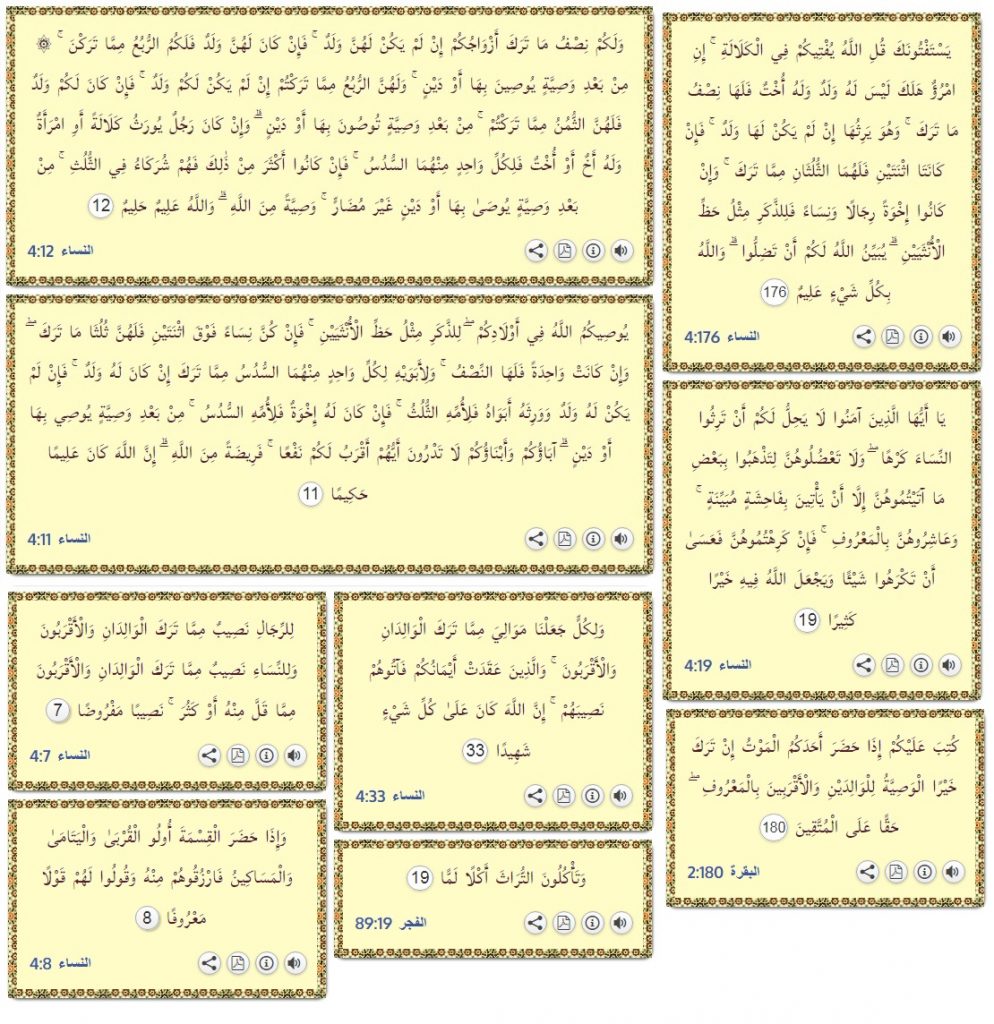 ۞ وَلَكُمْ نِصْفُ مَا تَرَكَ أَزْوَاجُكُمْ إِنْ لَمْ يَكُنْ لَهُنَّ وَلَدٌ ۚ فَإِنْ كَانَ لَهُنَّ وَلَدٌ فَلَكُمُ الرُّبُعُ مِمَّا تَرَكْنَ ۚ
مِنْ بَعْدِ وَصِيَّةٍ يُوصِينَ بِهَا أَوْ دَيْنٍ ۚ وَلَهُنَّ الرُّبُعُ مِمَّا تَرَكْتُمْ إِنْ لَمْ يَكُنْ لَكُمْ وَلَدٌ ۚ فَإِنْ كَانَ لَكُمْ وَلَدٌ
فَلَهُنَّ الثُّمُنُ مِمَّا تَرَكْتُمْ ۚ مِنْ بَعْدِ وَصِيَّةٍ تُوصُونَ بِهَا أَوْ دَيْنٍ ۗ وَإِنْ كَانَ رَجُلٌ يُورَثُ كَلَالَةً أَوِ امْرَأَةٌ
وَلَهُ أَخٌ أَوْ أُخْتٌ فَلِكُلِّ وَاحِدٍ مِنْهُمَا السُّدُسُ ۚ فَإِنْ كَانُوا أَكْثَرَ مِنْ ذَٰلِكَ فَهُمْ شُرَكَاءُ فِي الثُّلُثِ ۚ مِنْ
بَعْدِ وَصِيَّةٍ يُوصَىٰ بِهَا أَوْ دَيْنٍ غَيْرَ مُضَارٍّ ۚ وَصِيَّةً مِنَ اللَّهِ ۗ وَاللَّهُ عَلِيمٌ حَلِيمٌ 12
النساء 4:12
يُوصِيكُمُ اللَّهُ فِي أَوْلَادِكُمْ ۖ لِلذَّكَرِ مِثْلُ حَظِّ الْأُنْثَيَيْنِ ۚ فَإِنْ كُنَّ نِسَاءً فَوْقَ اثْنَتَيْنِ فَلَهُنَّ ثُلُثَا مَا تَرَكَ ۖ
وَإِنْ كَانَتْ وَاحِدَةً فَلَهَا النِّصْفُ ۚ وَلِأَبَوَيْهِ لِكُلِّ وَاحِدٍ مِنْهُمَا السُّدُسُ مِمَّا تَرَكَ إِنْ كَانَ لَهُ وَلَدٌ ۚ فَإِنْ لَمْ
يَكُنْ لَهُ وَلَدٌ وَوَرِثَهُ أَبَوَاهُ فَلِأُمِّهِ الثُّلُثُ ۚ فَإِنْ كَانَ لَهُ إِخْوَةٌ فَلِأُمِّهِ السُّدُسُ ۚ مِنْ بَعْدِ وَصِيَّةٍ يُوصِي بِهَا
أَوْ دَيْنٍ ۗ آبَاؤُكُمْ وَأَبْنَاؤُكُمْ لَا تَدْرُونَ أَيُّهُمْ أَقْرَبُ لَكُمْ نَفْعًا ۚ فَرِيضَةً مِنَ اللَّهِ ۗ إِنَّ اللَّهَ كَانَ عَلِيمًا
حَكِيمًا 11
النساء 4:11
يَسْتَفْتُونَكَ قُلِ اللَّهُ يُفْتِيكُمْ فِي الْكَلَالَةِ ۚ إِنِ
امْرُؤٌ هَلَكَ لَيْسَ لَهُ وَلَدٌ وَلَهُ أُخْتٌ فَلَهَا نِصْفُ
مَا تَرَكَ ۚ وَهُوَ يَرِثُهَا إِنْ لَمْ يَكُنْ لَهَا وَلَدٌ ۚ فَإِنْ
كَانَتَا اثْنَتَيْنِ فَلَهُمَا الثُّلُثَانِ مِمَّا تَرَكَ ۚ وَإِنْ
كَانُوا إِخْوَةً رِجَالًا وَنِسَاءً فَلِلذَّكَرِ مِثْلُ حَظِّ
الْأُنْثَيَيْنِ ۗ يُبَيِّنُ اللَّهُ لَكُمْ أَنْ تَضِلُّوا ۗ وَاللَّهُ
بِكُلِّ شَيْءٍ عَلِيمٌ 176
النساء 4:176
يَا أَيُّهَا الَّذِينَ آمَنُوا لَا يَحِلُّ لَكُمْ أَنْ تَرِثُوا
النِّسَاءَ كَرْهًا ۖ وَلَا تَعْضُلُوهُنَّ لِتَذْهَبُوا بِبَعْضِ
مَا آتَيْتُمُوهُنَّ إِلَّا أَنْ يَأْتِينَ بِفَاحِشَةٍ مُبَيِّنَةٍ ۚ
وَعَاشِرُوهُنَّ بِالْمَعْرُوفِ ۚ فَإِنْ كَرِهْتُمُوهُنَّ فَعَسَىٰ
أَنْ تَكْرَهُوا شَيْئًا وَيَجْعَلَ اللَّهُ فِيهِ خَيْرًا
كَثِيرًا 19
النساء 4:19
لِلرِّجَالِ نَصِيبٌ مِمَّا تَرَكَ الْوَالِدَانِ وَالْأَقْرَبُونَ
وَلِلنِّسَاءِ نَصِيبٌ مِمَّا تَرَكَ الْوَالِدَانِ وَالْأَقْرَبُونَ
مِمَّا قَلَّ مِنْهُ أَوْ كَثُرَ ۚ نَصِيبًا مَفْرُوضًا 7
النساء 4:7
وَلِكُلٍّ جَعَلْنَا مَوَالِيَ مِمَّا تَرَكَ الْوَالِدَانِ
وَالْأَقْرَبُونَ ۚ وَالَّذِينَ عَقَدَتْ أَيْمَانُكُمْ فَآتُوهُمْ
نَصِيبَهُمْ ۚ إِنَّ اللَّهَ كَانَ عَلَىٰ كُلِّ شَيْءٍ
شَهِيدًا 33
النساء 4:33
كُتِبَ عَلَيْكُمْ إِذَا حَضَرَ أَحَدَكُمُ الْمَوْتُ إِنْ تَرَكَ
خَيْرًا الْوَصِيَّةُ لِلْوَالِدَيْنِ وَالْأَقْرَبِينَ بِالْمَعْرُوفِ ۖ
حَقًّا عَلَى الْمُتَّقِينَ 180
البقرة 2:180
وَإِذَا حَضَرَ الْقِسْمَةَ أُولُو الْقُرْبَىٰ وَالْيَتَامَىٰ
وَالْمَسَاكِينُ فَارْزُقُوهُمْ مِنْهُ وَقُولُوا لَهُمْ قَوْلًا
مَعْرُوفًا 8
النساء 4:8
وَتَأْكُلُونَ التُّرَاثَ أَكْلًا لَمًّا 19
الفجر 89:19